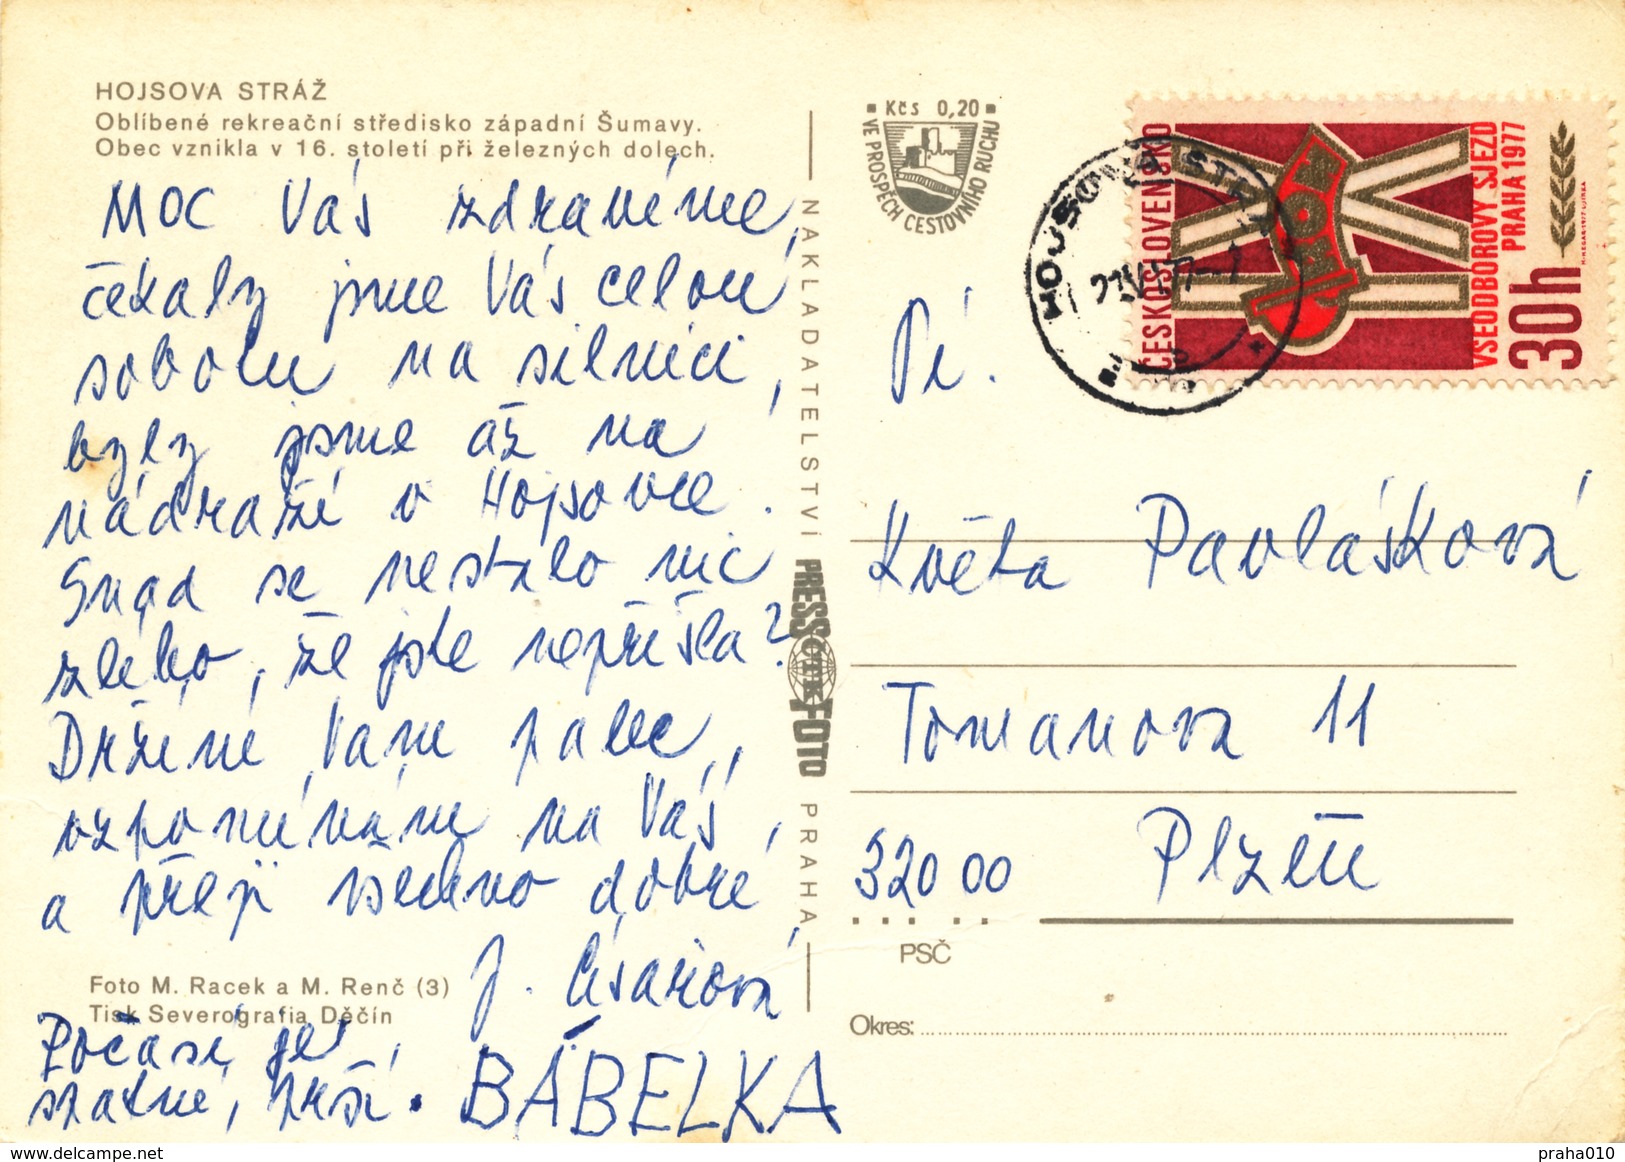 HOJSOVA STRÁŽ
Oblíbené rekreační středisko západní Šumavy.
Obec vznikla v 16. století při železných dolech.
MOC Vás zdravíme,
čekaly jsme Vás celou
sobotu na silnici,
byly jsme až na
nádraží v Hojsovce.
Snad se nestalo nic
zlého, že jste nepřišla?
Držíme Vám palec,
vzpomínám na Vás,
a přeji všechno dobré
J. Císařová
Foto M. Racek a M. Renč (3)
Tisk Severografia Děčín
Počasí je
špatné, prší. BÁBELKA
NAKLADATELSTVÍ PRESSFOTO PRAHA
ČTK
Kčs 0,20
VE PROSPĚCH CESTOVNÍHO RUCHU
HOJSOVA STRÁŽ
ČESKOSLOVENSKO
VŠEODBOROVÝ SJEZD
PRAHA 1977
30h
Pí.
Květa Pavlásková
Tomanova 11
320 00 Plzeň
PSČ
Okres:
delcampe.net
praha010